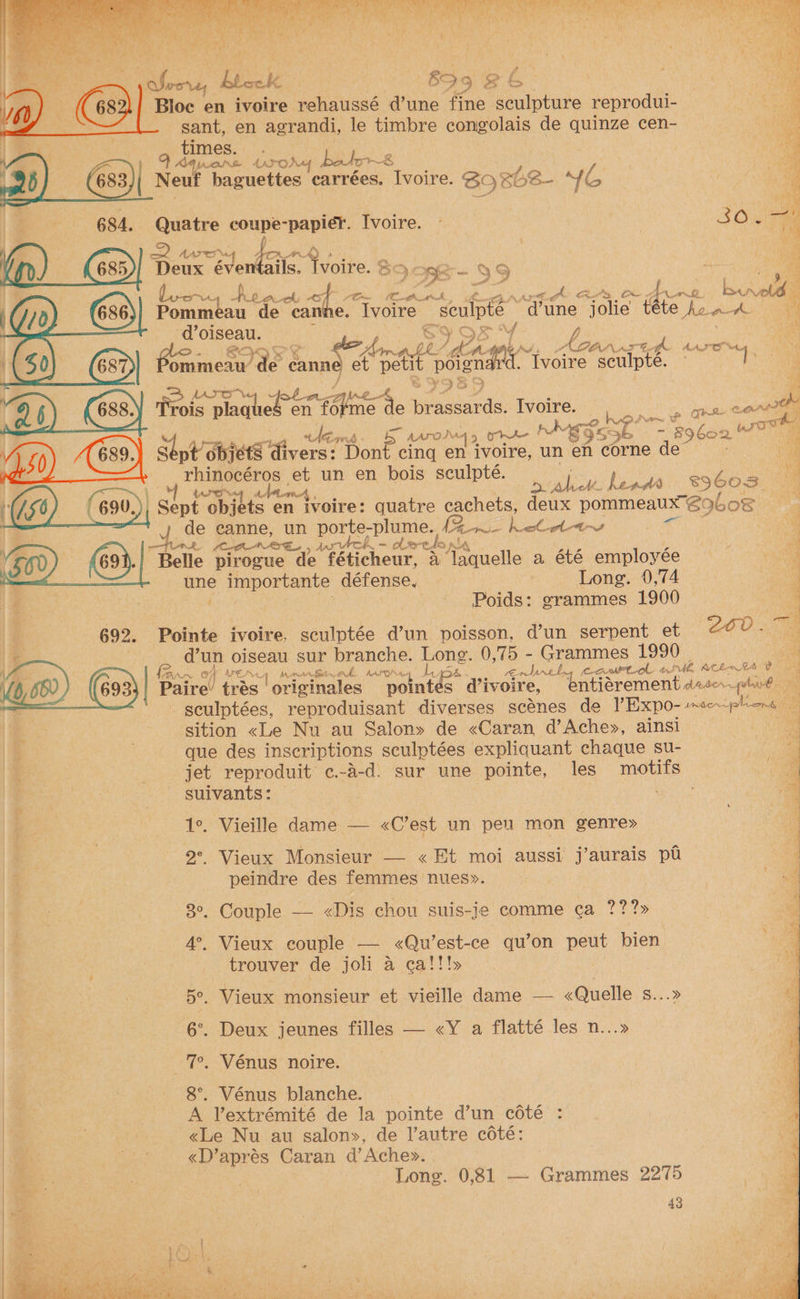 Ivory block 899 86
10 682. Bloc en ivoire rehaussé d'une fine sculpture reprodui-
sant, en agrandi, le timbre congolais de quinze cen-
times.
9 square ivory batons
26 683. Neuf baguettes carrées. Ivoire. 89868- 46
684. Quatre coupe-papier. Ivoire. 30.—
2 ivory fans
685. Deux éventails. Ivoire. 99
686. Pommeau de canne. Ivoire sculpté d'une jolie tête
d'oiseau.
50 687. Pommeau de canne et petit poignard. Ivoire sculpté.
89989
26 688. Trois plaques en forme de brassards. Ivoire.
items. 5 ivory, 89602
450 689. Sept objets divers: Dont cinq en ivoire, un en corne de
rhinocéros et un en bois sculpté.
stick heads 89603
150 690. Sept objets en ivoire: quatre cachets, deux pommeaux 89608
de canne, un porte-plume.
500 691. Belle pirogue de féticheur, à laquelle a été employée
une importante défense. Long. 0,74
Poids: grammes 1900
692. Pointe ivoire, sculptée d'un poisson, d'un serpent et 200.—
d'un oiseau sur branche. Long. 0,75 - Grammes 1990
Pair of very original ivory entirely carved with scenes &
693. Paire très originales pointés d'ivoire, entièrement
sculptées, reproduisant diverses scènes de l'Expo- inscriptions
sition «Le Nu au Salon» de «Caran d'Ache», ainsi
que des inscriptions sculptées expliquant chaque su-
jet reproduit c.-à-d. sur une pointe, les motifs
suivants:
1°. Vieille dame — «C'est un peu mon genre»
2°. Vieux Monsieur — «Et moi aussi j'aurais pû
peindre des femmes nues».
3°. Couple — «Dis chou suis-je comme ça ???»
4°. Vieux couple — «Qu'est-ce qu'on peut bien
trouver de joli à ça!!!»
5°. Vieux monsieur et vieille dame — «Quelle s...»
6°. Deux jeunes filles — «Y a flatté les n...»
7°. Vénus noire.
8°. Vénus blanche.
A l'extrémité de la pointe d'un côté :
«Le Nu au salon», de l'autre côté:
«D'après Caran d'Ache».
Long. 0,81 — Grammes 2275
43